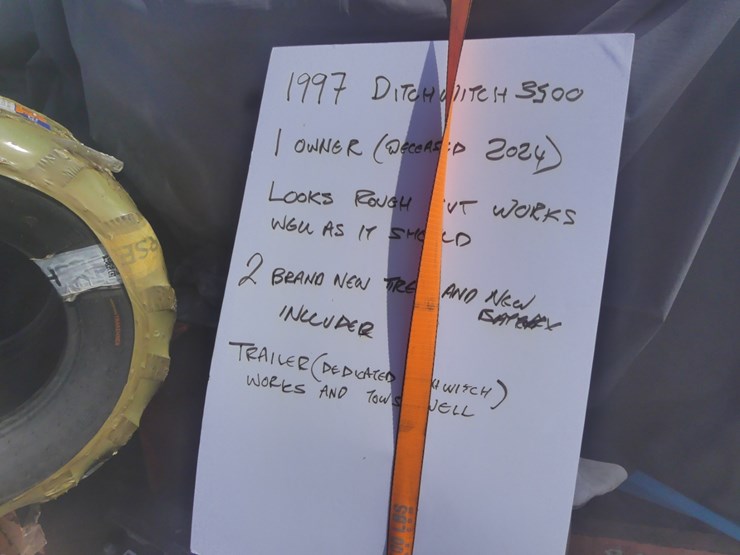 1997 DITCHWITCH 3500
1 OWNER (DECEASED 2024)
LOOKS ROUGH UT WORKS
WELL AS IT SHO LD
2 BRAND NEW TIRE AND NEW
INCLUDED BATTERY
TRAILER (DEDICATED HWITCH)
WORKS AND TOWS WELL
LBS